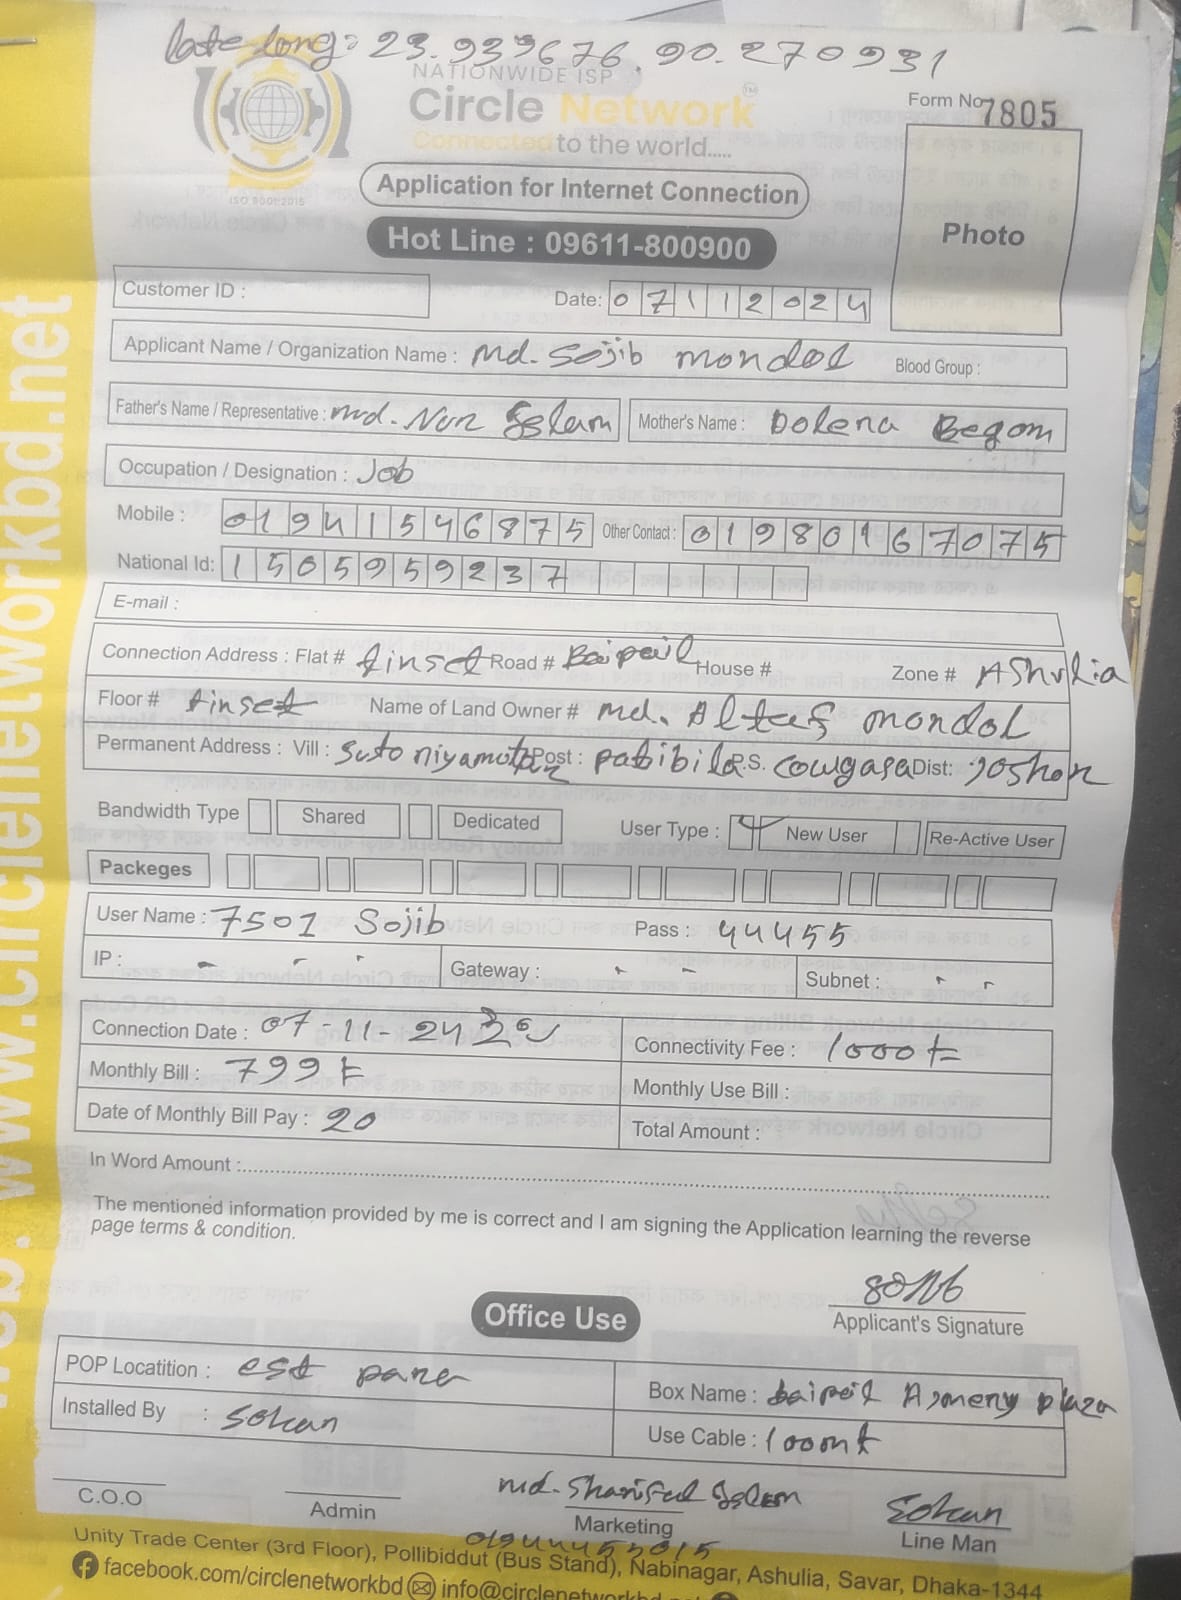 late long: 23.939676.90.270931
NATIONWIDE ISP
Circle Network™
Connected to the world.....
ISO 9001:2015
Form No 7805
Photo
Application for Internet Connection
Hot Line : 09611-800900
Customer ID :
Date: 07112024
Applicant Name / Organization Name : md. Sojib mondol Blood Group :
Father's Name / Representative : md. Nur Islam Mother's Name : Dolena Begom
Occupation / Designation : Job
Mobile : 01941546875 Other Contact : 01980167075
National Id: 1505959237
E-mail :
Connection Address : Flat # tinset Road # Baipail House # Zone # AShulia
Floor # tinset Name of Land Owner # md. Altaf mondol
Permanent Address : Vill : Post : P.S. Dist:
Bandwidth Type Shared Dedicated User Type : New User Re-Active User
Packeges
User Name : 7501 Sojib Pass : 44455
IP : Gateway : Subnet :
Connection Date : 07-11-24 Connectivity Fee : 1000
Monthly Bill : 799 Monthly Use Bill :
Date of Monthly Bill Pay : 20 Total Amount :
In Word Amount :
The mentioned information provided by me is correct and I am signing the Application learning the reverse
page terms & condition.
Applicant's Signature
Office Use
POP Locatition : est para Box Name : baipail plaza
Installed By : Sohan Use Cable : 1000mt
C.O.O Admin md. Shariful Islam Marketing Sohan Line Man
Unity Trade Center (3rd Floor), Pollibiddut (Bus Stand), Nabinagar, Ashulia, Savar, Dhaka-1344
facebook.com/circlenetworkbd info@circlenetworkbd.net
www.circlenetworkbd.net